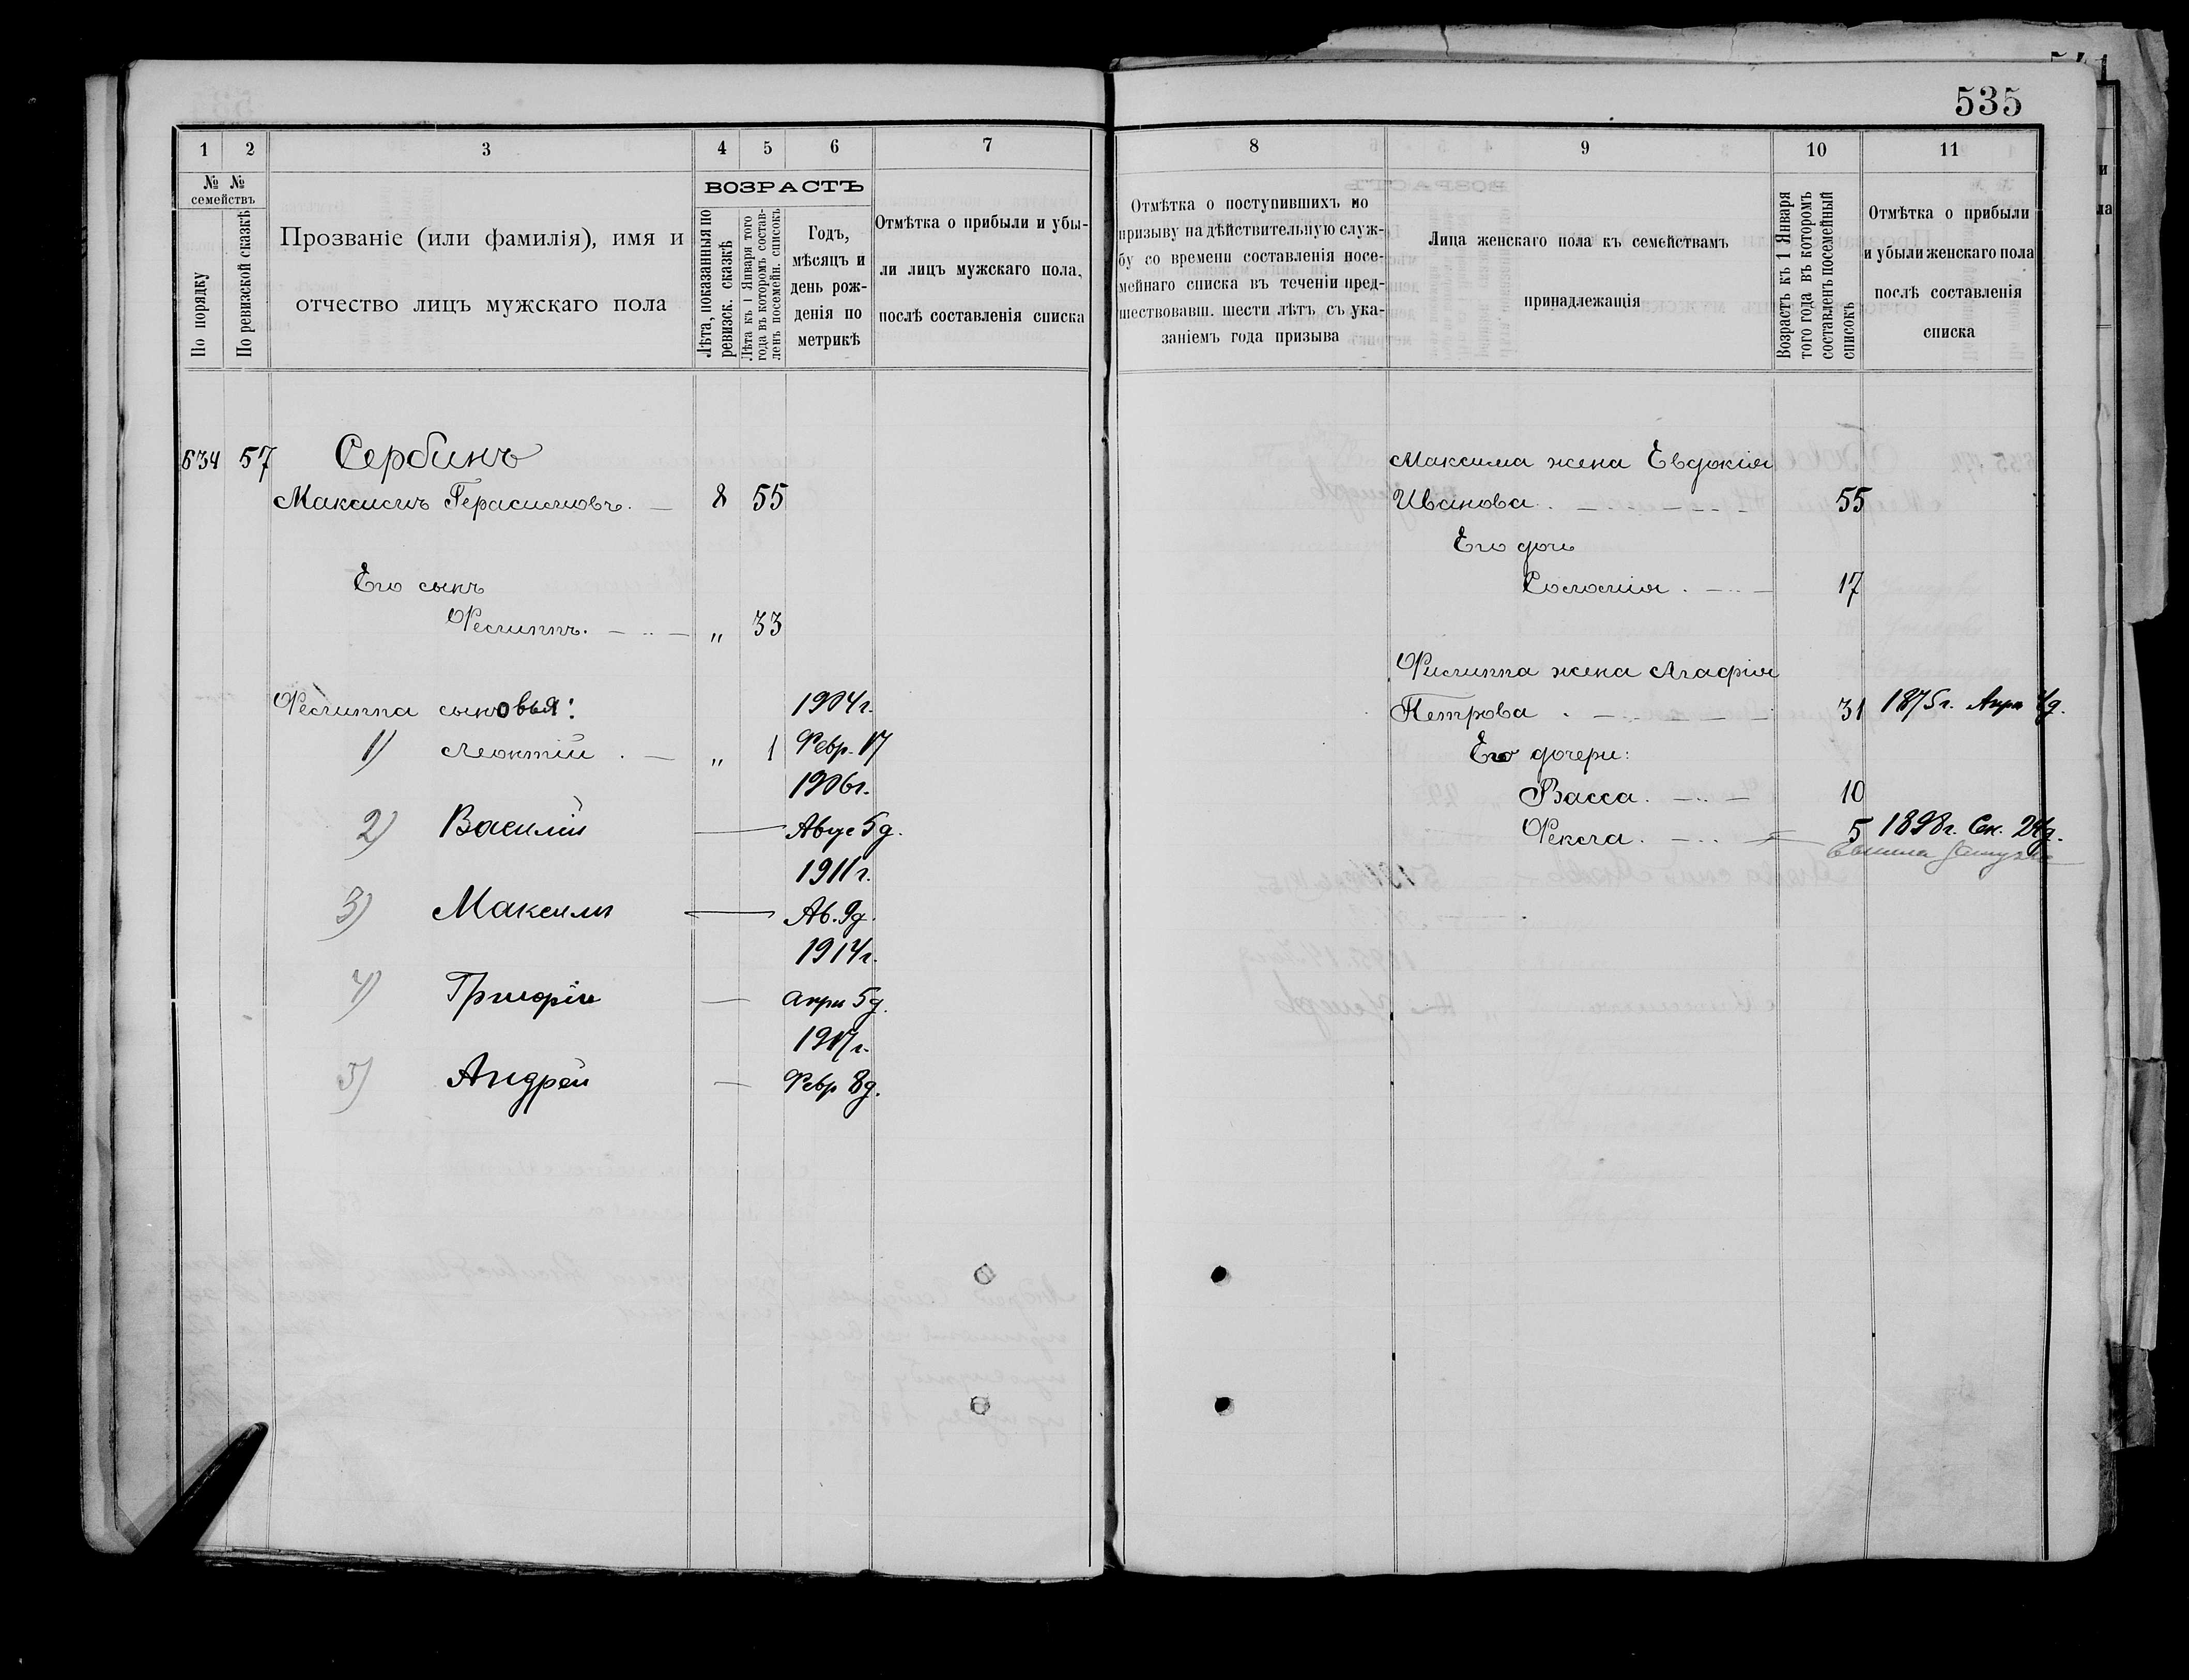 535
1
2
3
4
5
6
7
№ №
семействъ
По порядку
По ревизской сказкѣ
Прозваніе (или фамилія), имя и
отчество лицъ мужскаго пола
ВОЗРАСТЪ
Лѣта, показанныя по
ревизск. сказкѣ
Лѣта къ 1 Января того
года въ которомъ состав-
ленъ посемейн. списокъ
Годъ,
мѣсяцъ и
день рож-
денія по
метрикѣ
Отмѣтка о прибыли и убы-
ли лицъ мужскаго пола,
послѣ составленія списка
634 57 Сербинъ
Максимъ Герасимовъ. 8 55
Его сынъ
Филиппъ. „ 33
Филиппа сыновья:
1904г.
1) Леонтій „ 1 Февр. 17
1906г.
2) Василій — Авгус 5д.
1911г.
3) Максимъ — Ав. 9д.
1914г.
4) Григорій — Апри 5д.
1917г.
5) Андрей — Февр 8д.
8
9
10
11
Отмѣтка о поступившихъ по
призыву на дѣйствительную служ-
бу со времени составленія посе-
мейнаго списка въ теченіи пред-
шествовавш. шести лѣтъ съ ука-
заніемъ года призыва
Лица женскаго пола къ семействамъ
принадлежащія
Возрастъ къ 1 Января
того года въ которомъ
составленъ посемейный
списокъ
Отмѣтка о прибыли
и убыли женскаго пола
послѣ составленія
списка
Максима жена Евдокія
Иванова. 55
Его дочь
Соломія. 17
Филиппа жена Агафія
Петрова 31 1875г. Апри 4д.
Его дочери:
Васса. 10
Фекла. 5 1898г. Сен. 24д.